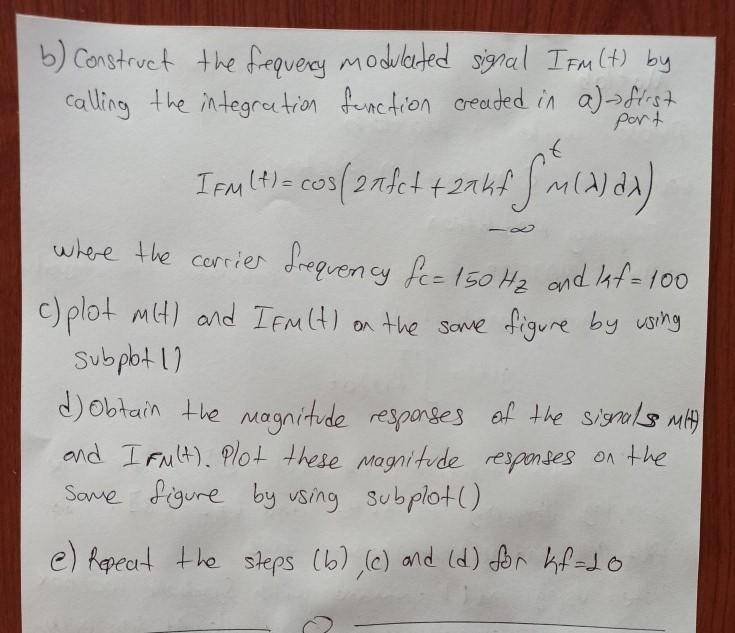 b) Construct the frequency modulated signal IFM(t) by
calling the integration function created in a)→first
part
IFM(t) = cos(2πfct + 2πkf ∫_{-∞}^{t} m(λ)dλ)
where the carrier frequency fc = 150 Hz and kf = 100
c) plot m(t) and IFM(t) on the same figure by using
subplot()
d) Obtain the magnitude responses of the signals m(t)
and IFM(t). Plot these magnitude responses on the
same figure by using subplot()
e) Repeat the steps (b), (c) and (d) for kf=10